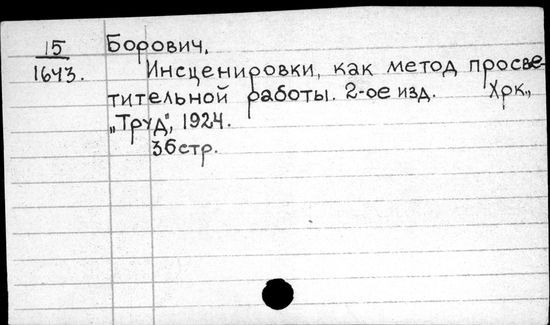 15 Борович.
1643. Инсценировки, как метод просве-
тительной работы. 2-ое изд. Хрк.,
„Труд", 1924.
36стр.